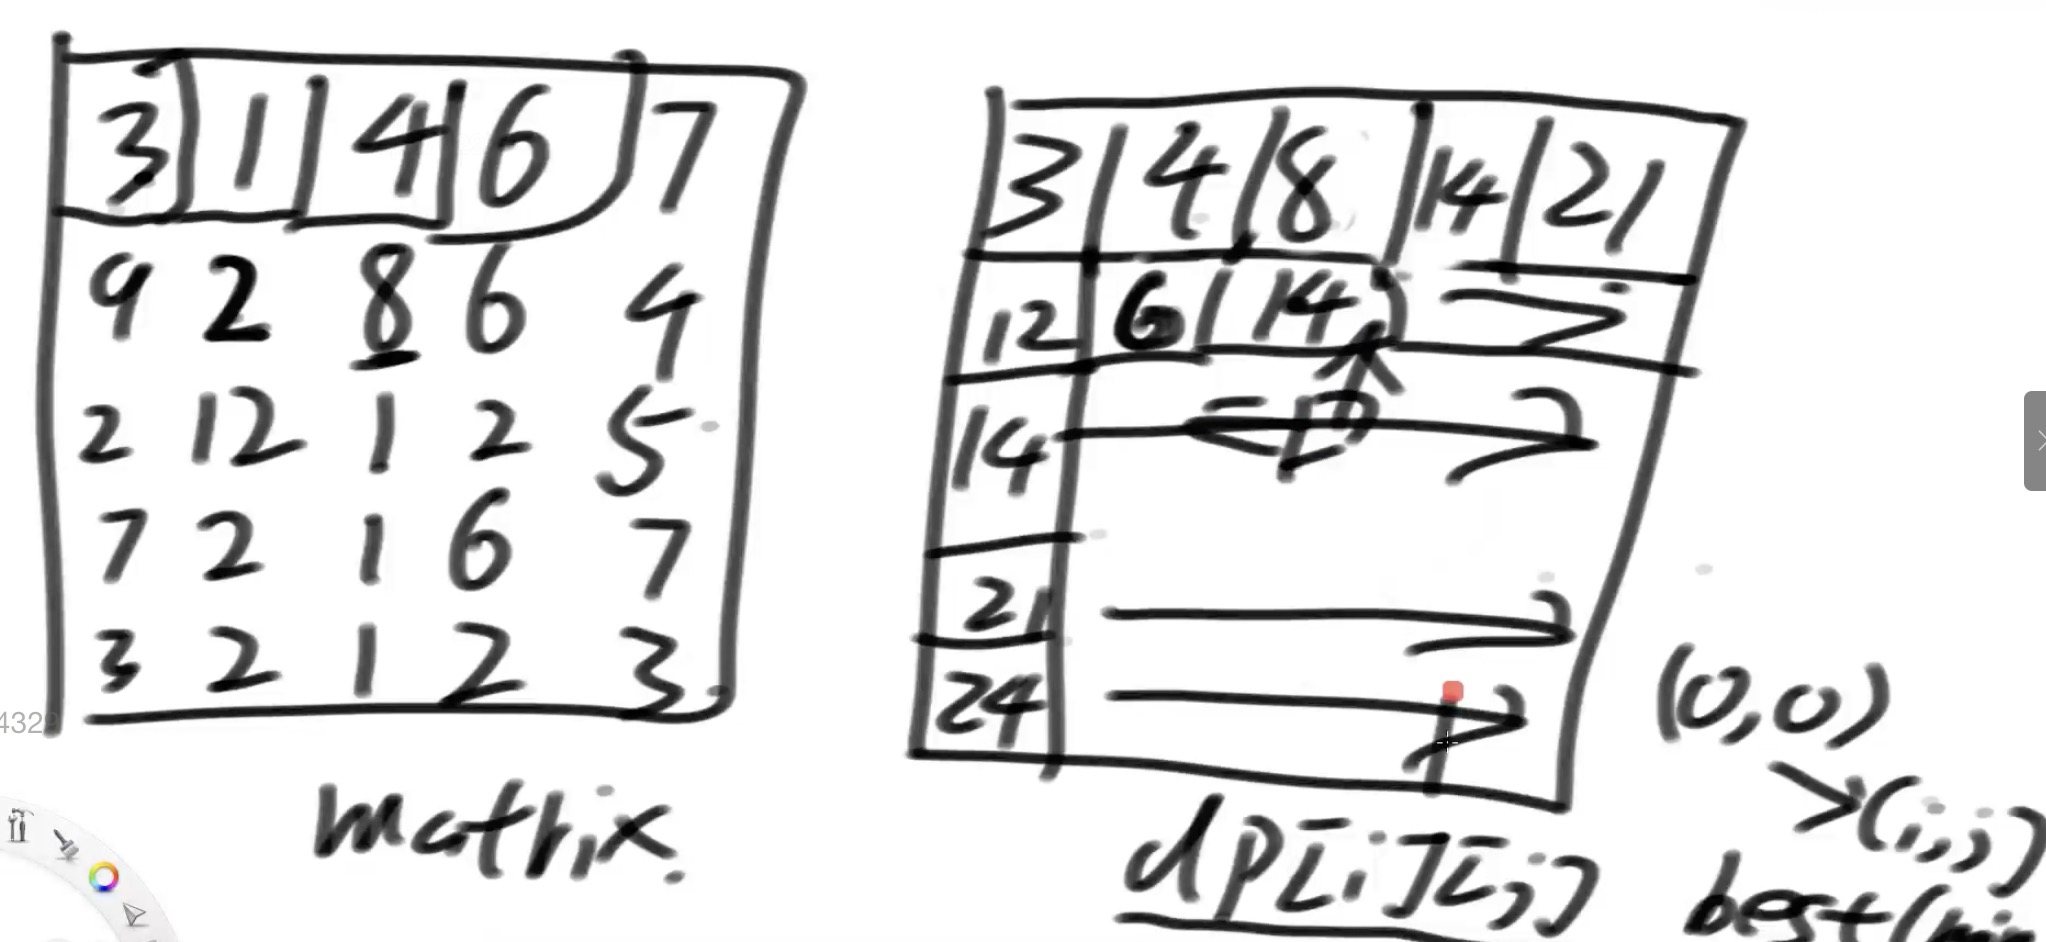 3 1 4 6 7
9 2 8 6 4
2 12 1 2 5
7 2 1 6 7
3 2 1 2 3
matrix.
3 4 8 14 21
12 6 14
14
21
24
dp[i][j]
(0,0)
>(i,j)
best(min
432